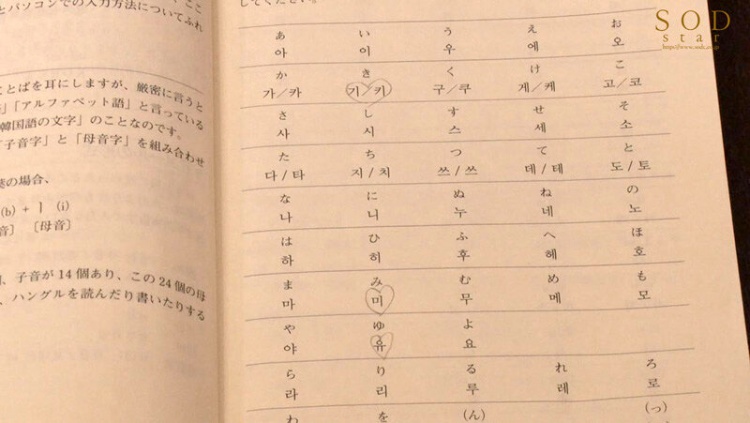 とパソコンでの入力方法についてふれ
ことばを耳にしますが、厳密に言うと
「アルファベット語」と言っている
韓国語の文字」のことなのです。
子音字」と「母音字」を組み合わせ
の場合、
(b) + ㅣ (i)
音〕 〔母音〕
子音が 14 個あり、この 24 個の母
、ハングルを読んだり書いたりする
してください。
あ い う え お
아 이 우 에 오
か き く け こ
가/카 기/키 구/쿠 게/케 고/코
さ し す せ そ
사 시 스 세 소
た ち つ て と
다/타 지/치 쓰/쓰 데/테 도/토
な に ぬ ね の
나 니 누 네 노
は ひ ふ へ ほ
하 히 후 헤 호
ま み む め も
마 미 무 메 모
や ゆ よ
야 유 요
ら り る れ ろ
라 리 루 레 로
わ を (ん) (っ)
SOD
star